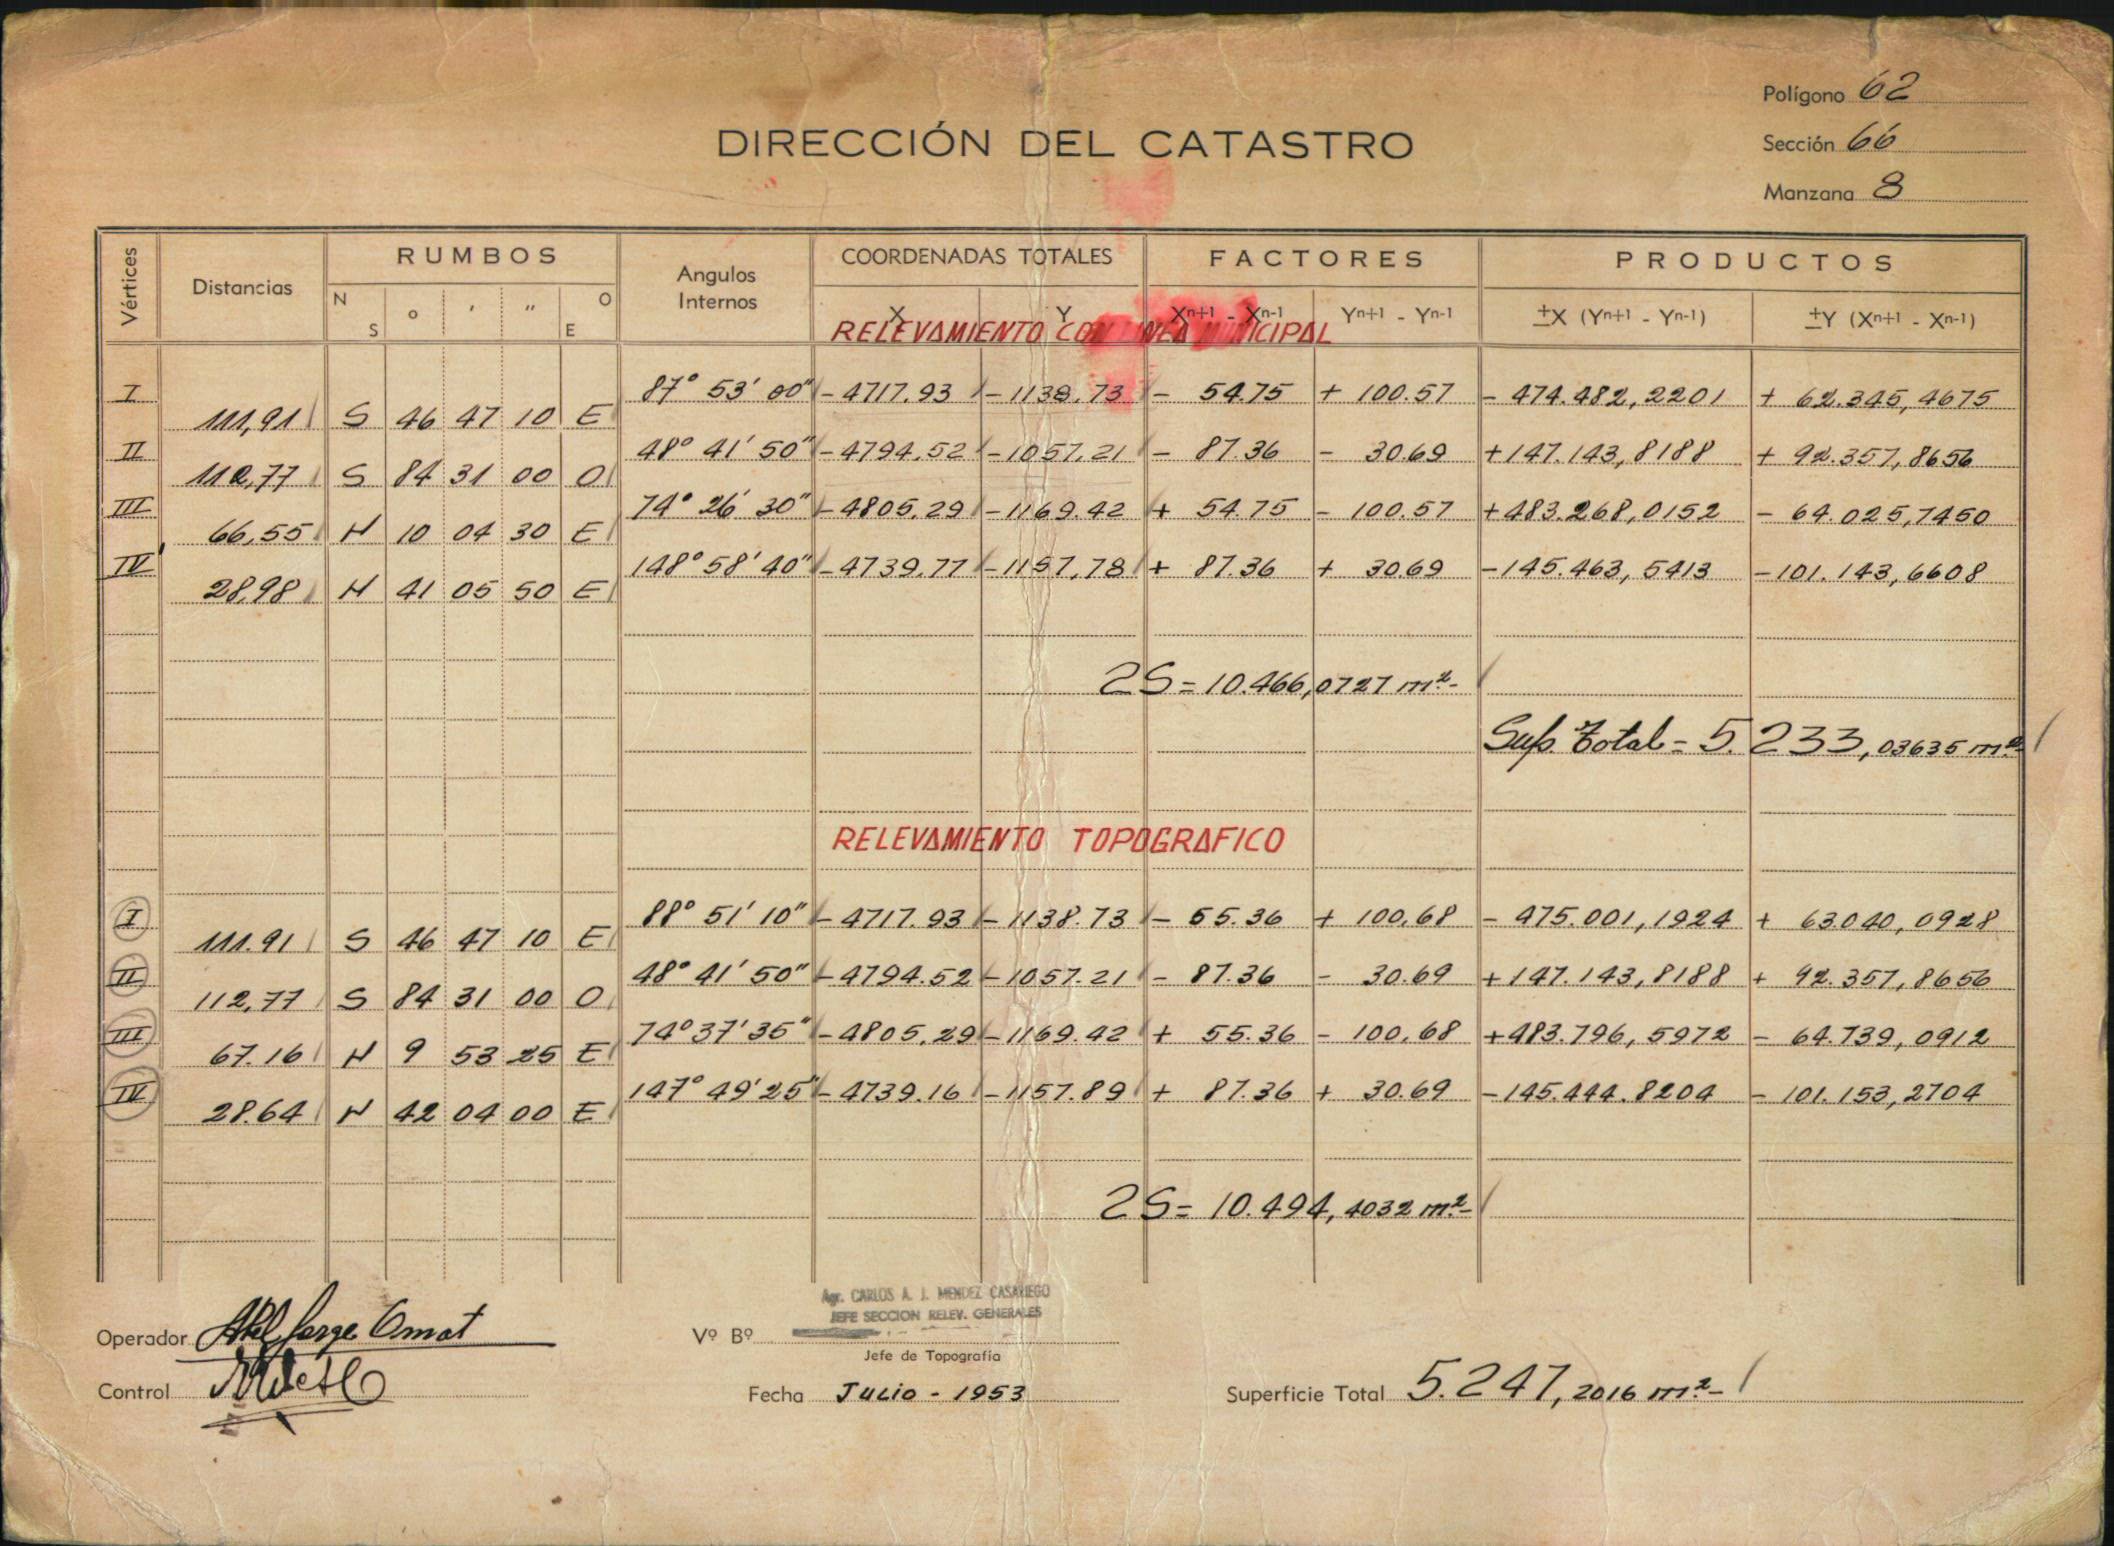 Polígono 62
DIRECCIÓN DEL CATASTRO
Sección 66
Manzana 8
Vértices
Distancias
RUMBOS
N S
o ' "
O E
Angulos
Internos
COORDENADAS TOTALES
X Y
FACTORES
Xn+1 - Xn-1 Yn+1 - Yn-1
PRODUCTOS
±X (Yn+1 - Yn-1) ±Y (Xn+1 - Xn-1)
RELEVAMIENTO CON LINEA MUNICIPAL
I 87° 53' 00" - 4717.93 - 1138.73 - 54.75 + 100.57 - 474.482,2201 + 62.345,4675
111,91 S 46 47 10 E
II 48° 41' 50" - 4794.52 - 1057.21 - 87.36 - 30.69 + 147.143,8188 + 92.357,8656
112,77 S 84 31 00 O
III 74° 26' 30" - 4805.29 - 1169.42 + 54.75 - 100.57 + 483.268,0152 - 64.025,7450
66,55 N 10 04 30 E
IV 148° 58' 40" - 4739.77 - 1157,78 + 87.36 + 30.69 - 145.463,5413 - 101.143,6608
28,98 N 41 05 50 E
2S = 10.466,0727 m2-
Sup. Total = 5.233,03635 m2-
RELEVAMIENTO TOPOGRAFICO
I 88° 51' 10" - 4717.93 - 1138.73 - 55.36 + 100.68 - 475.001,1924 + 63.040,0928
111.91 S 46 47 10 E
II 48° 41' 50" - 4794.52 - 1057.21 - 87.36 - 30.69 + 147.143,8188 + 92.357,8656
112,77 S 84 31 00 O
III 74° 37' 35" - 4805.29 - 1169.42 + 55.36 - 100.68 + 483.796,5972 - 64.739,0912
67.16 N 9 53 25 E
IV 147° 49' 25" - 4739.16 - 1157.89 + 87.36 + 30.69 - 145.444.8204 - 101.153,2704
28.64 N 42 04 00 E
2S = 10.494,4032 m2-
Agr. CARLOS A. J. MENDEZ CASARIEGO
JEFE SECCION RELEV. GENERALES
Operador Abel Jorge Omat
Vº Bº
Jefe de Topografía
Control
Fecha JULIO - 1953
Superficie Total 5.247,2016 m2-